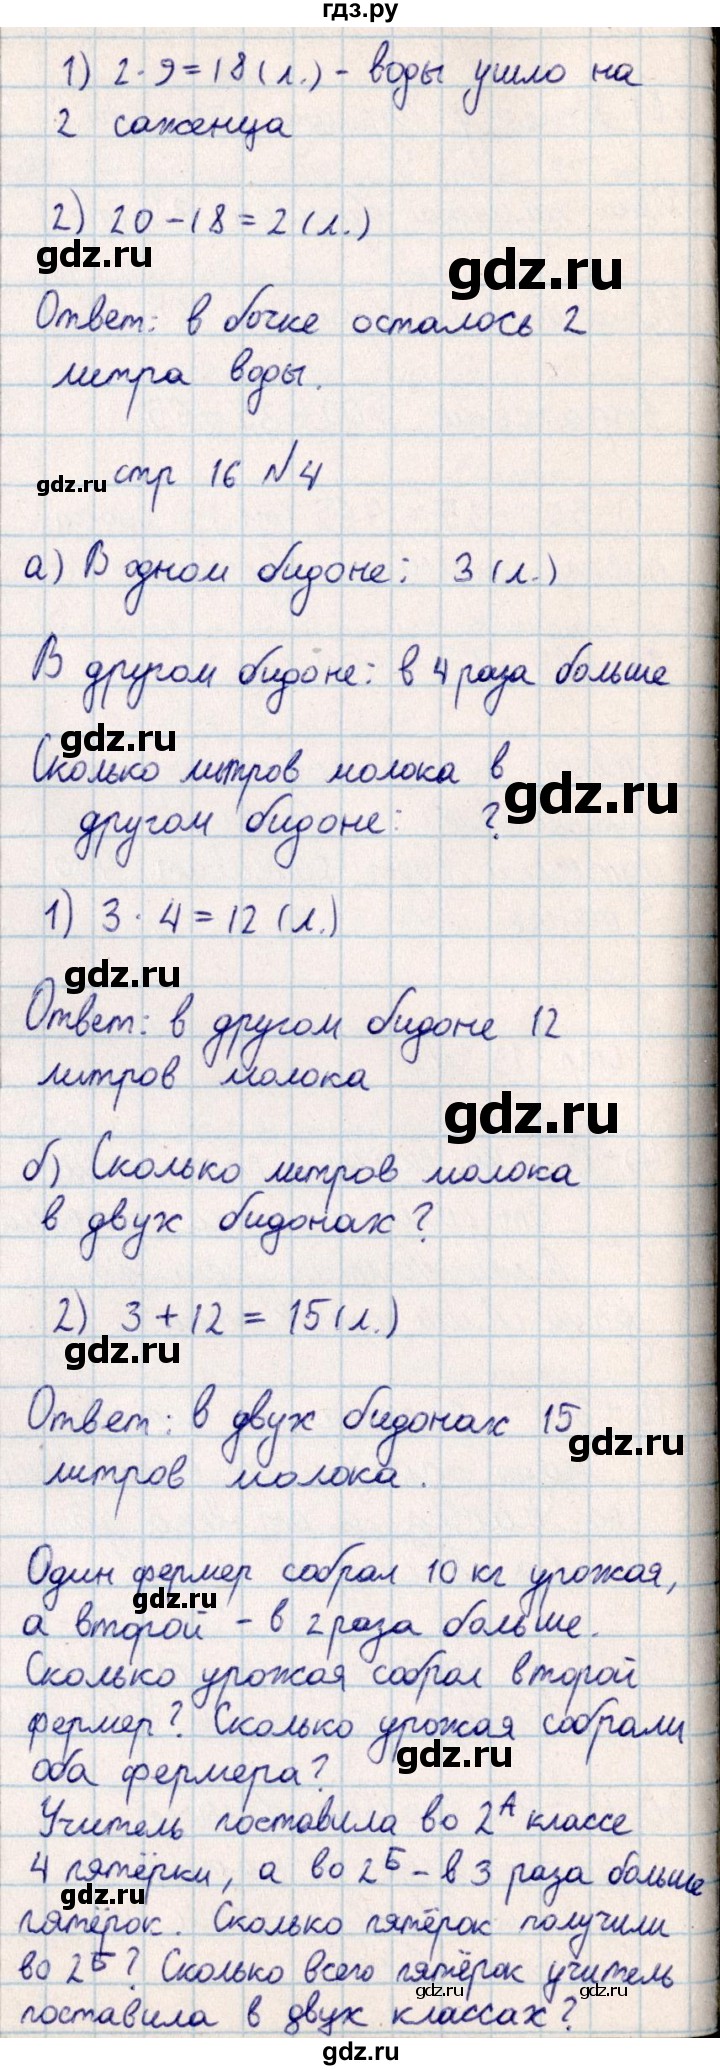 гдз.ру
1) 2·9=18(л.) - воды ушло на
2 саженца
2) 20-18=2(л.)
gdz.ru
gdz.ru
Ответ: в бочке осталось 2
литра воды.
gdz.ru
стр 16 №4
а) В одном бидоне: 3(л.)
В другом бидоне: в 4 раза больше
gdz.ru
Сколько литров молока в
gdz.ru
другом бидоне: ?
1) 3·4=12(л.)
gdz.ru
Ответ: в другом бидоне 12
литров молока
gdz.ru
б) Сколько литров молока
в двух бидонах?
2) 3+12=15(л.)
gdz.ru
Ответ: в двух бидонах 15
gdz.ru
литров молока.
Один фермер собрал 10 кг урожая,
gdz.ru
а второй - в 2 раза больше.
Сколько урожая собрал второй
фермер? Сколько урожая собрали
gdz.ru
оба фермера?
Учитель поставила во 2А классе
4 пятёрки, а во 2Б - в 3 раза больше
gdz.ru
пятёрок. Сколько пятёрок получили
во 2Б? Сколько всего пятёрок учитель
gdz.ru
поставила в двух классах?
gdz.ru